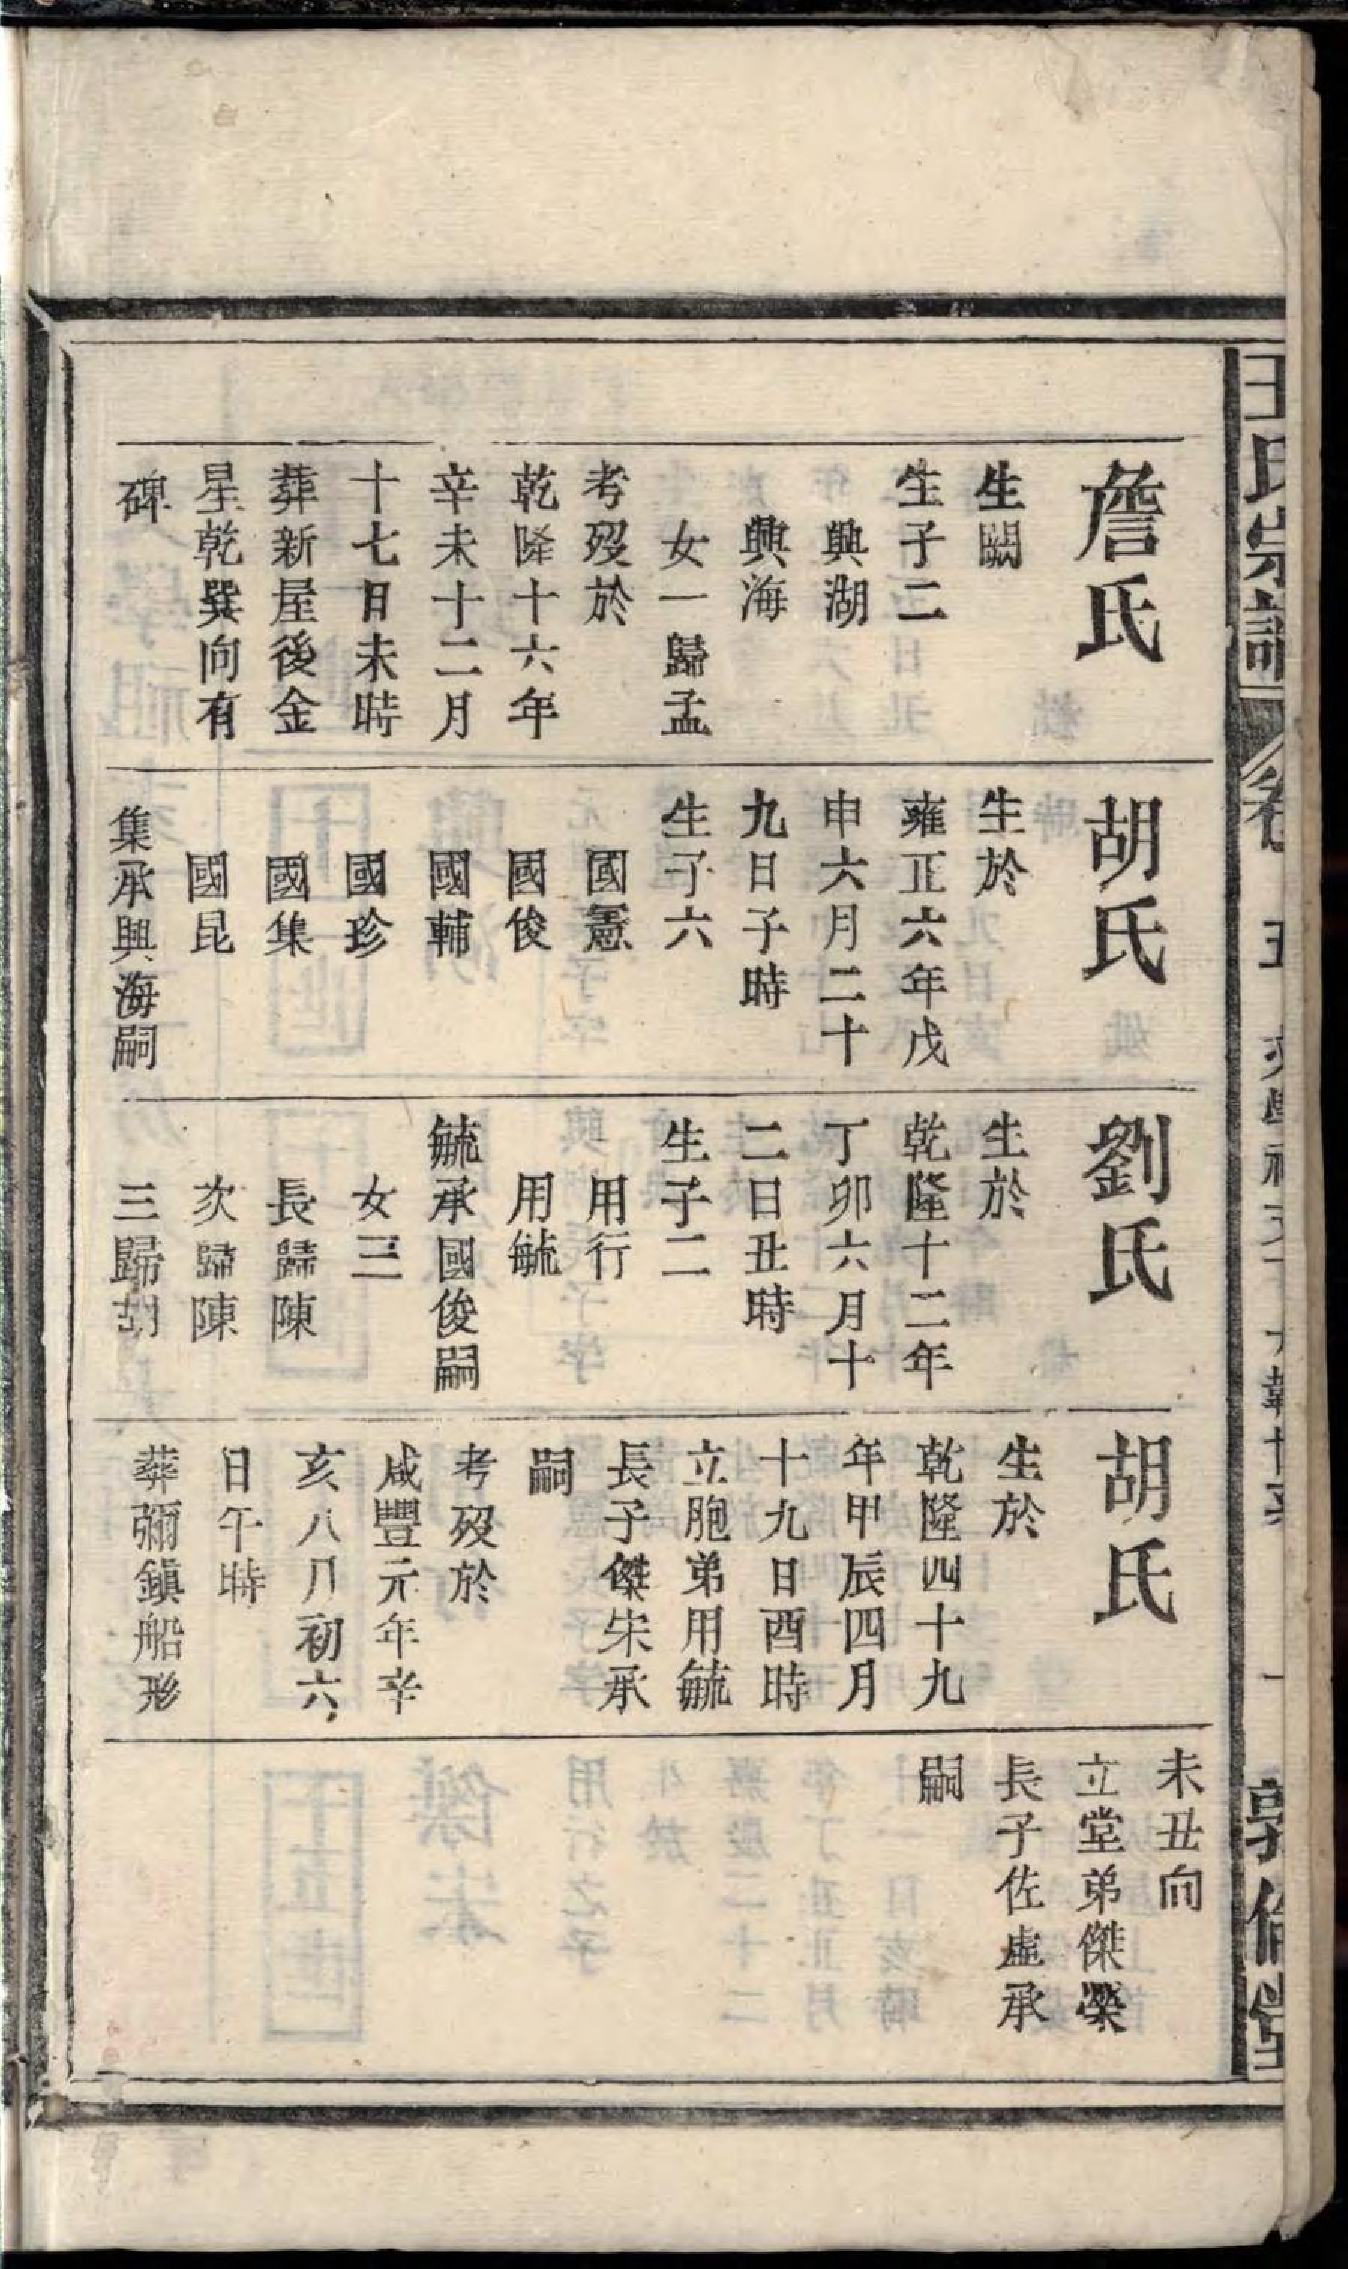 王氏宗譜
卷
五
一
敦倫堂
詹氏
生闕
生子二
興湖
興海
女一歸孟
考歿於
乾隆十六年
辛未十二月
十七日未時
葬新屋後金
星乾巽向有
碑
胡氏
生於
雍正六年戊
申六月二十
九日子時
生子六
國憲
國俊
國輔
國珍
國集
國昆
集承興海嗣
劉氏
生於
乾隆十二年
丁卯六月十
二日丑時
生子二
用行
用毓
毓承國俊嗣
女三
長歸陳
次歸陳
三歸胡
胡氏
生於
乾隆四十九
年甲辰四月
十九日酉時
立胞弟用毓
長子傑宋承
嗣
考歿於
咸豐元年辛
亥八月初六
日午時
葬彌鎮船形
未丑向
立堂弟傑榮
長子佐虛承
嗣